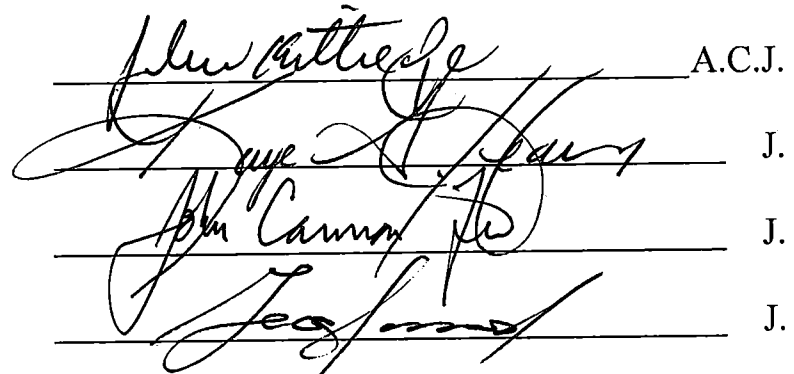 John Kittredge A.C.J.
Kaye G. Hearn J.
John Cannon Few J.
J.